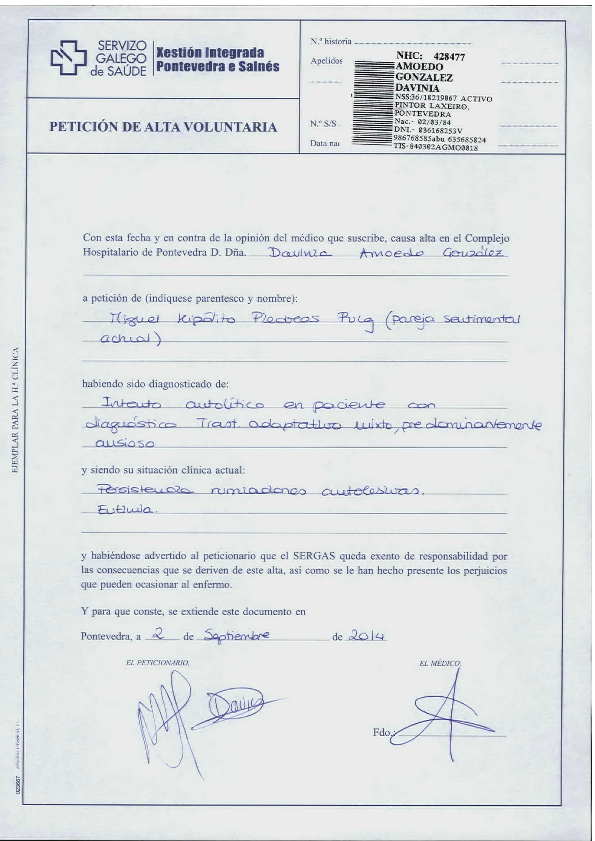 SERVIZO
GALEGO
de SAÚDE
Xestión Integrada
Pontevedra e Salnés
PETICIÓN DE ALTA VOLUNTARIA
N.º historia
Apelidos
N.º S/S
Data nac
NHC: 428477
AMOEDO
GONZALEZ
DAVINIA
NSS:36/10219867 ACTIVO
PINTOR LAXEIRO,
PONTEVEDRA
Nac.- 02/03/84
DNI.- 036168253V
986768585abu 635685824
TIS-840302AGMO0018
Con esta fecha y en contra de la opinión del médico que suscribe, causa alta en el Complejo
Hospitalario de Pontevedra D. Dña. Davinia Amoedo González
a petición de (indíquese parentesco y nombre):
Miguel Hipólito Piedras Puig (pareja sentimental
actual)
habiendo sido diagnosticado de:
Intento autolítico en paciente con
diagnóstico Trast. adaptativo mixto, predominantemente
ansioso
y siendo su situación clínica actual:
Persistencia rumiaciones autolesivas.
Eutimia.
y habiéndose advertido al peticionario que el SERGAS queda exento de responsabilidad por
las consecuencias que se deriven de este alta, así como se le han hecho presente los perjuicios
que pueden ocasionar al enfermo.
Y para que conste, se extiende este documento en
Pontevedra, a 2 de Septiembre de 2014
EL PETICIONARIO,
EL MÉDICO,
Davinia
Fdo.:
EJEMPLAR PARA LA H.ª CLÍNICA